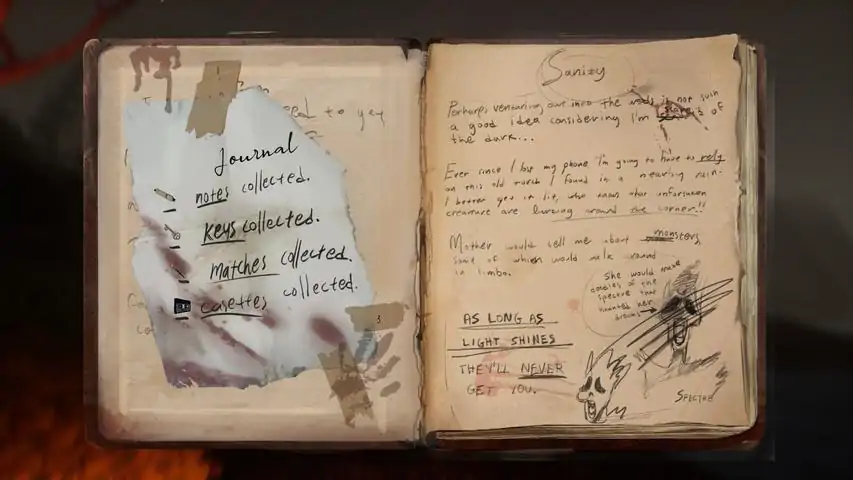 Journal
notes collected.
keys collected.
matches collected.
casettes collected.
3
Sanity
Perhaps venturing out into the woods is not such
a good idea considering I'm scared of
the dark...
Ever since I lost my phone I'm going to have to rely
on this old torch I found in a nearby ruin.
I better get it lit, who knows what unforseen
creature are lurking around the corner!!
Mother would tell me about monsters,
some of which would walk around
in limbo.
She would make
doodles of the
spectre that
haunted her
dreams
AS LONG AS
LIGHT SHINES
THEY'LL NEVER
GET YOU.
SPECTRE